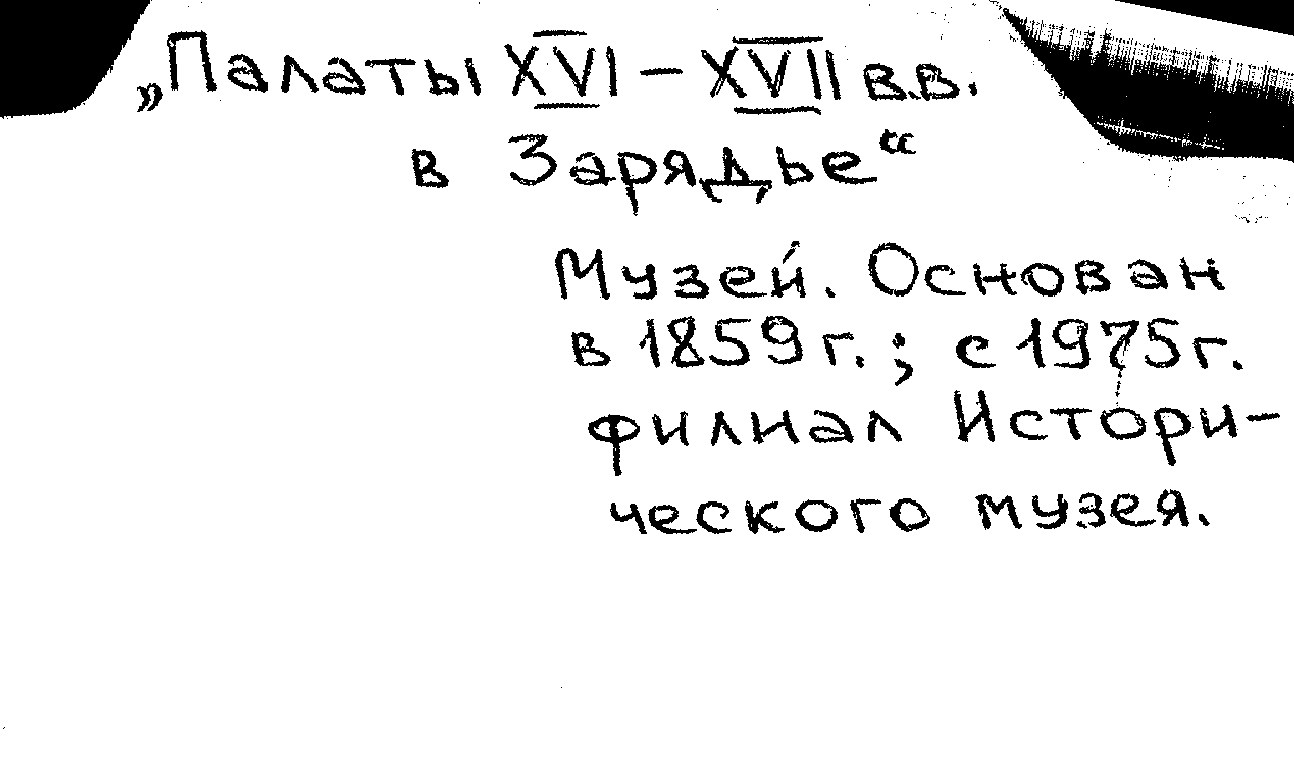 „Палаты XVI – XVII в.в.
в Зарядье“
Музей. Основан
в 1859 г.; с 1975 г.
филиал Истори-
ческого музея.